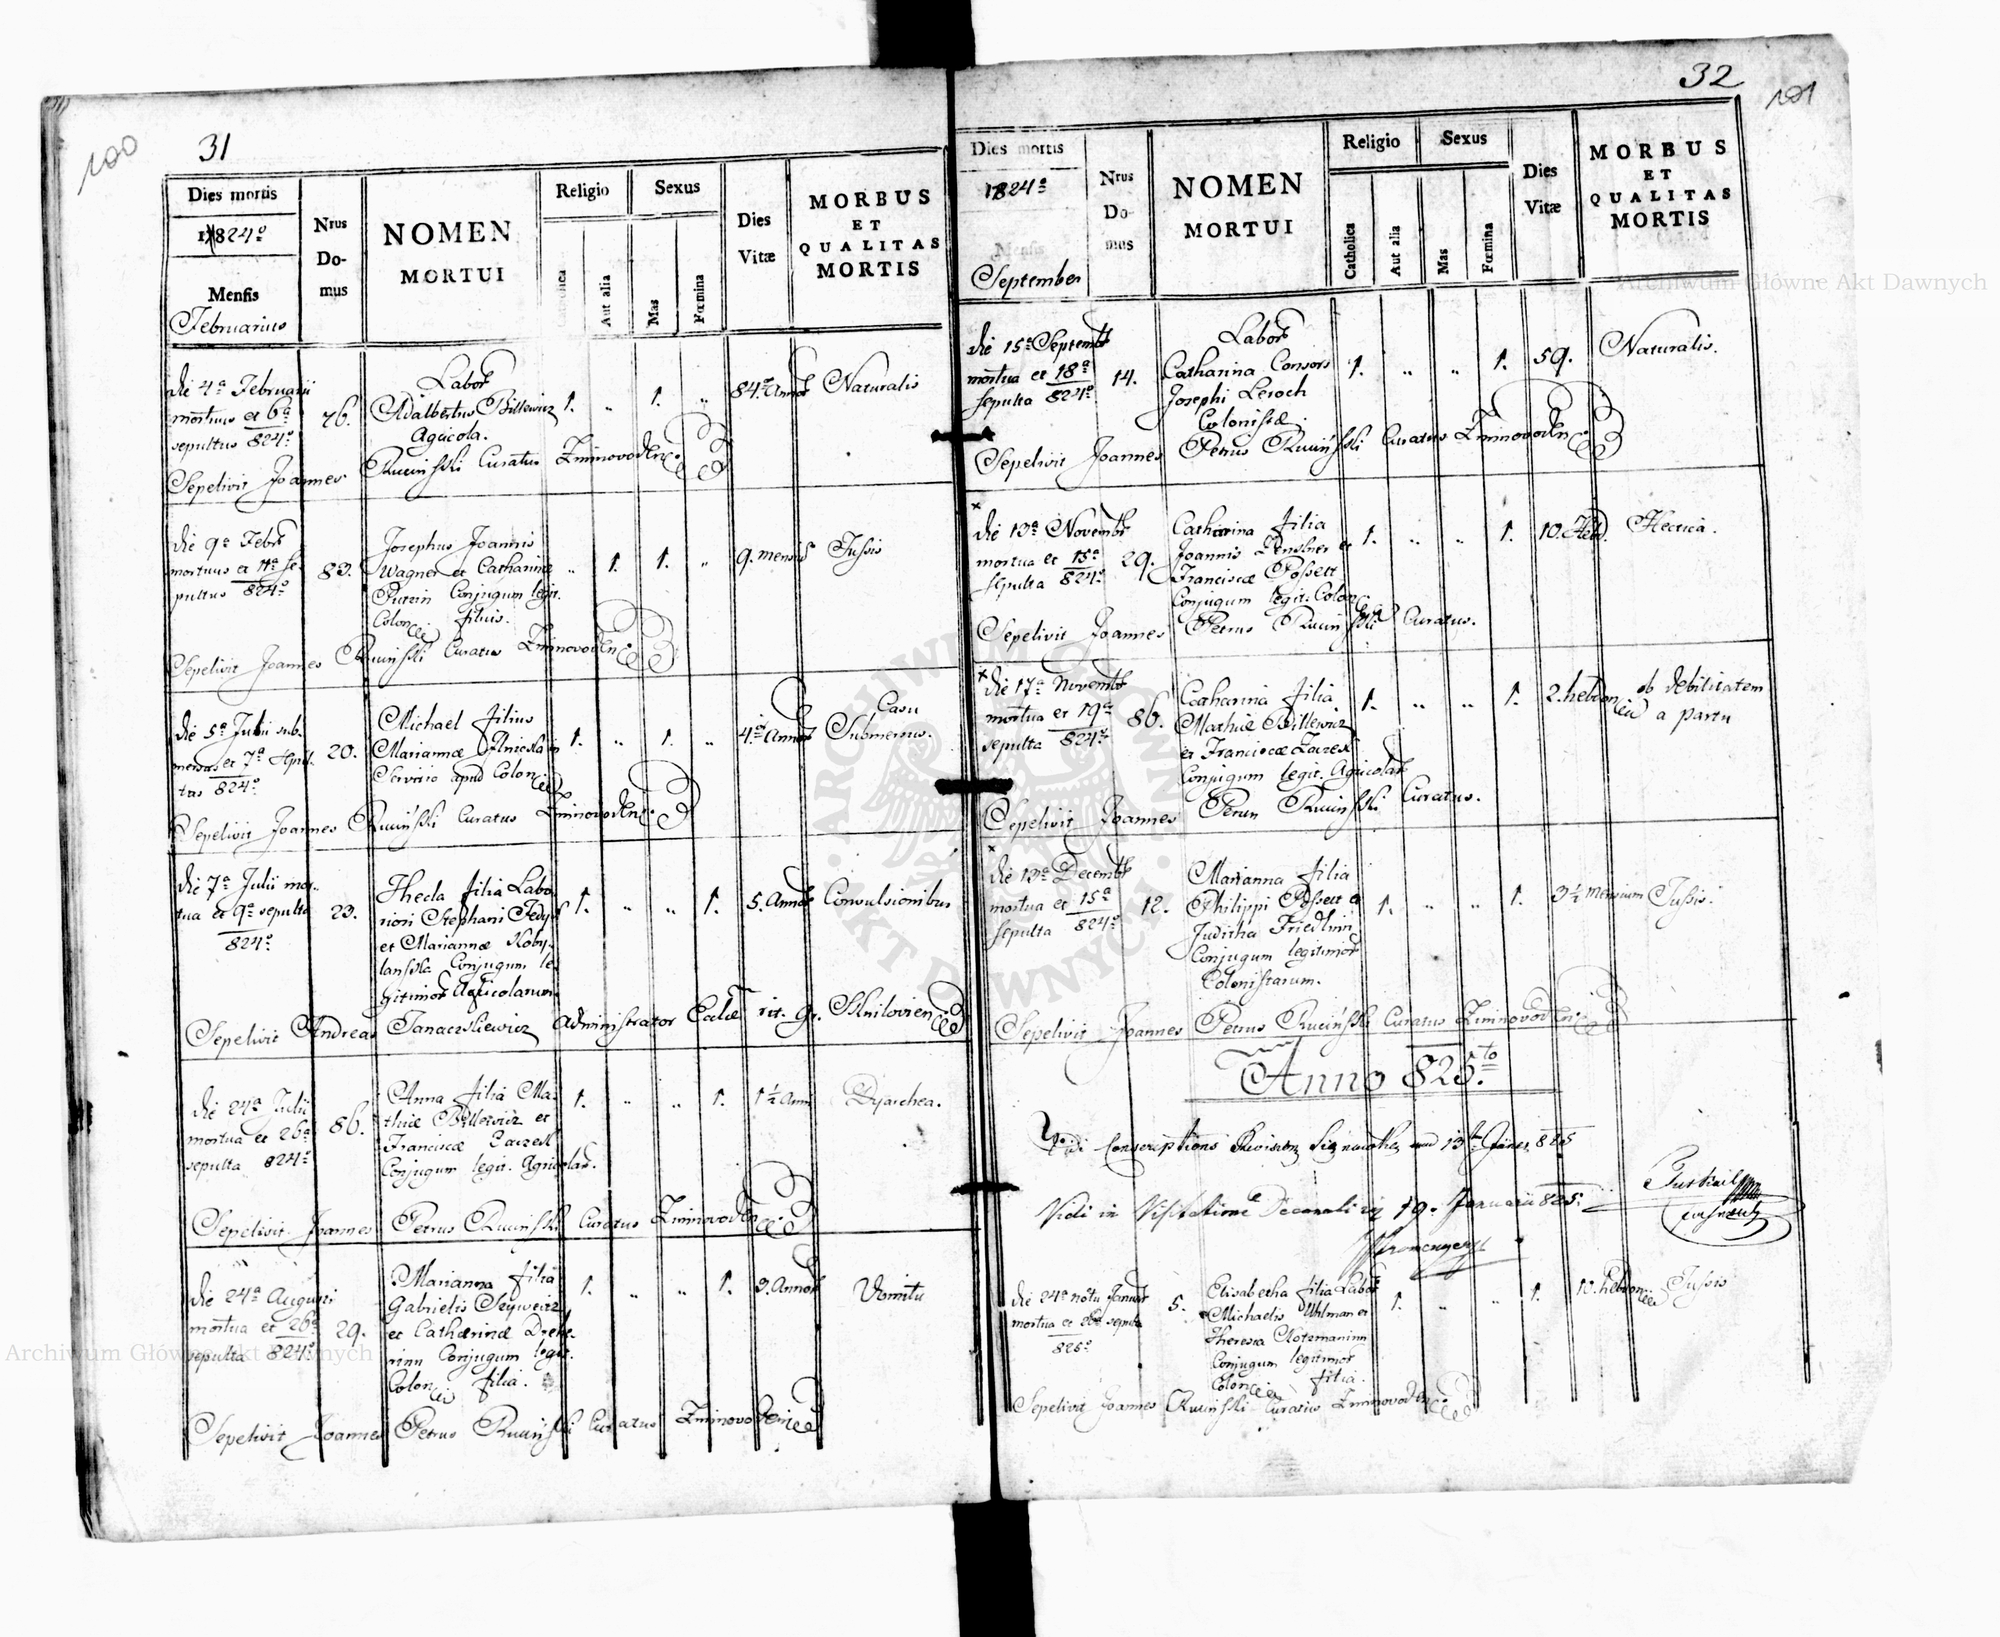 100
31
Dies mortis
1824º
Mensis
Februarius
Nrus
Do-
mus
NOMEN
MORTUI
Religio
Catholica
Aut alia
Sexus
Mas
Fœmina
Dies
Vitæ
MORBUS
ET
QUALITAS
MORTIS
die 4ª Februarii
mortuus et 6ª
sepultus 824º
76.
Labor
Adalbertus Billewicz
Agricola.
1. " 1. "
84. Annor
Naturalis
Sepelivit Joannes Ruciński Curatus Zimnovodencis
die 9ª Febr
mortuus et 11ª se
pultus 824º
83.
Josephus Joannis
Wagner et Catharinæ
Conjugum legit.
Colon filius.
" 1. 1. "
9. mensis
Tussis
Sepelivit Joannes Ruciński Curatus Zimnovodencis
die 5ª Julii sub
mersus et 7ª Sepul
tus 824º
20.
Michael filius
Mariannæ in
Servitio apud Colon
1. " 1. "
4. Annor
Casu
Submersus.
Sepelivit Joannes Ruciński Curatus Zimnovodenc
die 7ª Julii mor-
tua et 9ª sepulta
824º
23.
Thecla filia Labo
riori Stephani Fedy
et Mariannæ Koby-
lanska Conjugum le
gitimor Agricolarum
1. " " 1.
5. Annor
Convulsionibus
Sepelivit Andreas Tanaczkiewicz Administrator Eccl rit. gr. Sknilovien
die 24ª Julii
mortua et 26ª
sepulta 824º
86.
Anna filia Ma-
thiæ Billewicz et
Franciscæ Zaczek
Conjugum legit. Agricolar.
1. " " 1.
1½ Anni
Dyarchea.
Sepelivit Joannes Petrus Ruciński Curatus Zimnovodenc
die 24ª Augusti
mortua et 26ª
sepulta 824º
29.
Marianna filia
Gabrielis
et Catharinæ
Conjugum legit.
Colon filia.
1. " " 1.
3. Annor
Vomitu
Sepelivit Joannes Petrus Ruciński Curatus Zimnovodenc
32
101
Dies mortis
1824º
Mensis
September
Nrus
Do-
mus
NOMEN
MORTUI
Religio
Catholica
Aut alia
Sexus
Mas
Fœmina
Dies
Vitæ
MORBUS
ET
QUALITAS
MORTIS
die 15ª Septembr
mortua et 18ª
sepulta 824º
14.
Labor
Catharina Consors
Josephi Leroch
Colonistæ
1. " " 1.
59.
Naturalis.
Sepelivit Joannes Petrus Ruciński Curatus Zimnovodenc
die 13ª Novembr
mortua et 15ª
sepulta 824º
29.
Catharina filia
Joannis et
Franciscæ Possert
Conjugum legit. Colon
1. " " 1.
10. Hebd.
Hectica.
Sepelivit Joannes Petrus Ruciński Curatus.
die 17ª Novembr
mortua et 19ª
sepulta 824º
86.
Catharina filia
Mathiæ Billewicz
et Franciscæ Zaczek
Conjugum legit. Agricolar
1. " " 1.
2. hebdom
ob debilitatem
a partu
Sepelivit Joannes Petrus Ruciński Curatus.
die 13ª Decembr
mortua et 15ª
sepulta 824º
12.
Marianna filia
Philippi Possert et
Juditha Friedlin
Conjugum legitimor
Colonistarum.
1. " " 1.
3½ Mensium
Tussis.
Sepelivit Joannes Petrus Ruciński Curatus Zimnovodenc
Anno 825to
Vidi Conscriptions Revision 13ten 825
Vidi in Visitatione Decanali 19. Januarii 825.
die 24ª Januar
mortua et 26ª sepulta
825º
5.
Elisabetha filia Labor
Michaelis Uhlman et
Theresia
Conjugum legitimor
Colon filia.
1. " " 1.
10. hebdom
Tussis
Sepelivit Joannes Ruciński Curatus Zimnovodenc
Archiwum Główne Akt Dawnych
ARCHIWUM GŁÓWNE AKT DAWNYCH
Archiwum Główne Akt Dawnych